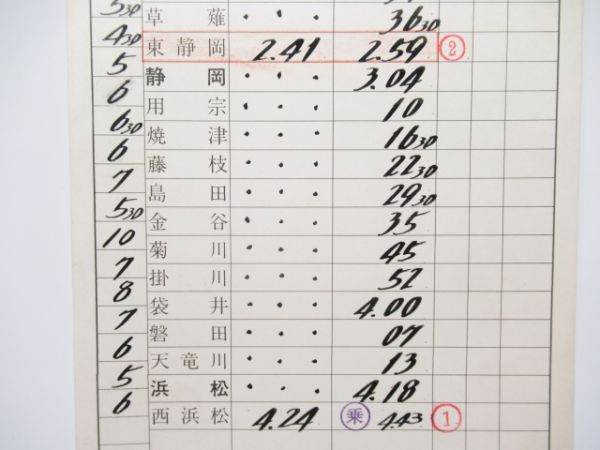 5 30 草薙 ・ ・ ・ 36 30
4 30 東静岡 2.41 2.59 ②
5 静岡 3.04
6 用宗 ・ ・ ・ 10
6 30 焼津 ・ ・ ・ 16 30
6 藤枝 ・ ・ ・ 22 30
7 島田 ・ ・ ・ 29 30
5 30 金谷 ・ ・ ・ 35
10 菊川 ・ ・ ・ 45
7 掛川 ・ ・ ・ 52
8 袋井 ・ ・ ・ 4.00
7 磐田 ・ ・ ・ 07
6 天竜川 ・ ・ ・ 13
5 浜松 ・ ・ ・ 4.18
6 西浜松 4.24 乗 4.43 ①